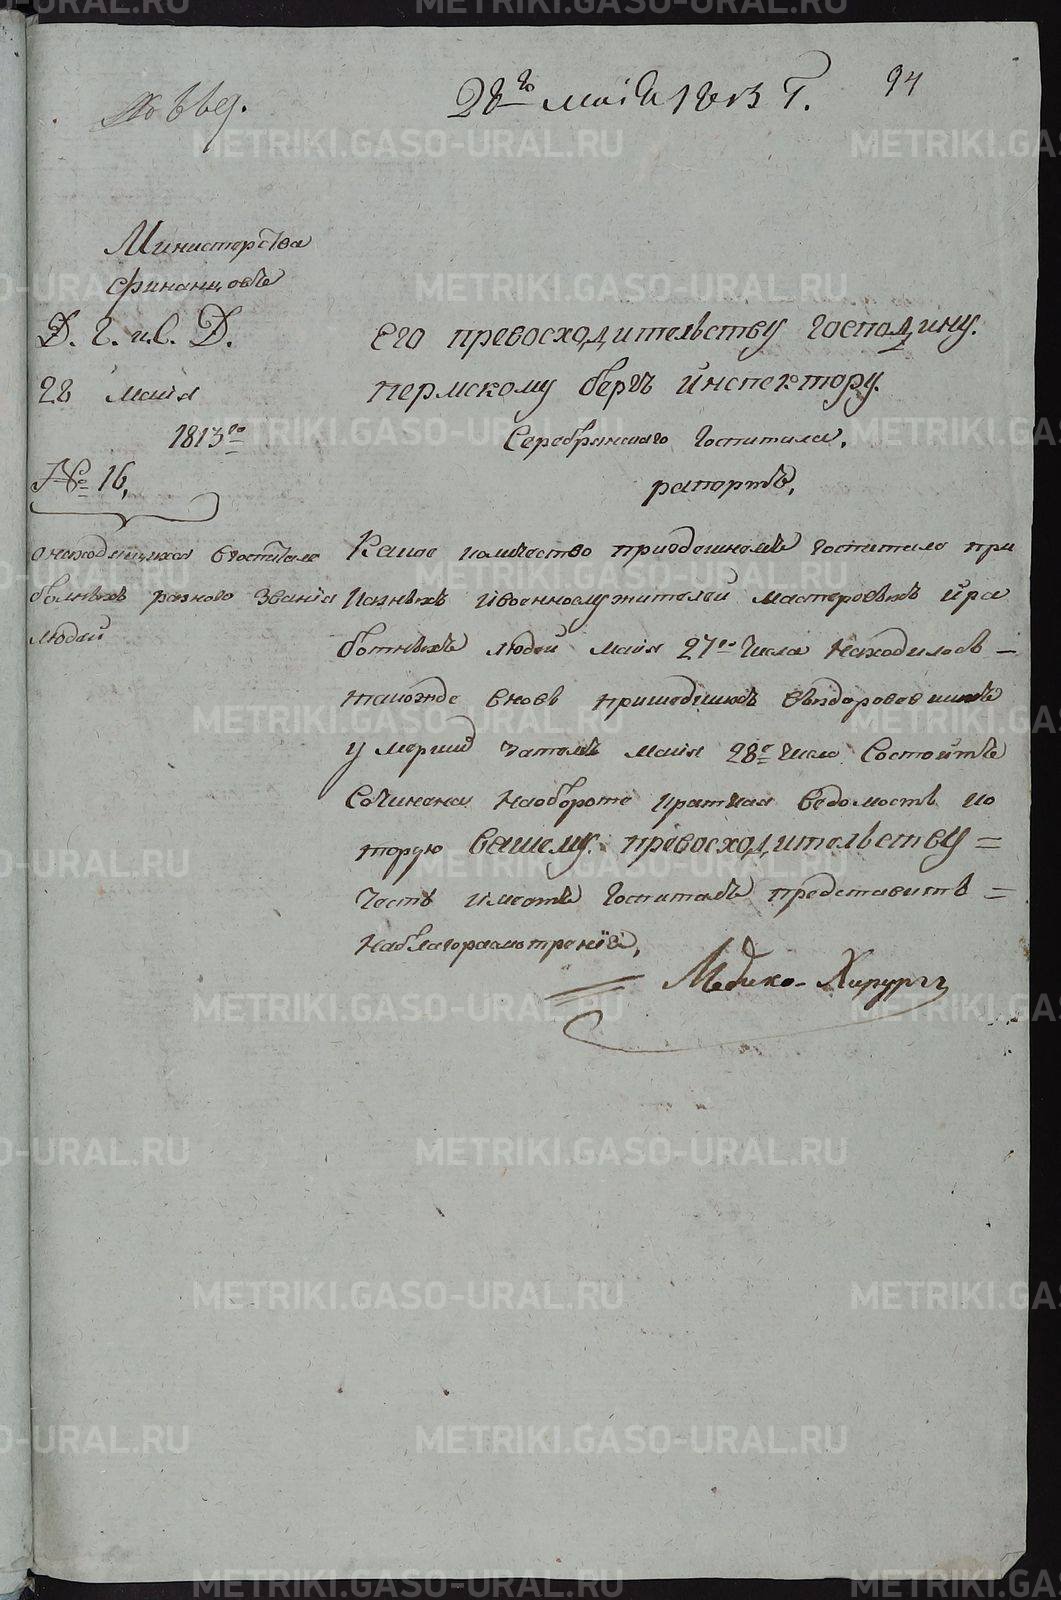 28го маiя 1813 Г.
94
Министерства
финансовъ
Д. Г. и С. Д.
28 маiя
1813го
№ 16,
о находящихся в гостпитале
больныхъ разного званiя
людей
его превосходительству господину.
пермскому бергъ инспектору.
Серебрянскаго Госпиталя,
рапортъ,
Какое количество приздешномъ госпитале при
казныхъ ивоеннослужителей мастеровыхъ ира
ботныхъ людей маiя 27го числа находилось —
такожде вновь пришедшихъ выздоровевшихъ
умерших затемъ маiя 28е число состоитъ
сочинена наобороте краткая ведомость ко
торую вашему превосходительству =
честь имеетъ госпиталь представить =
наблагоразмотренiе,
Медико-Хирургъ
METRIKI.GASO-URAL.RU